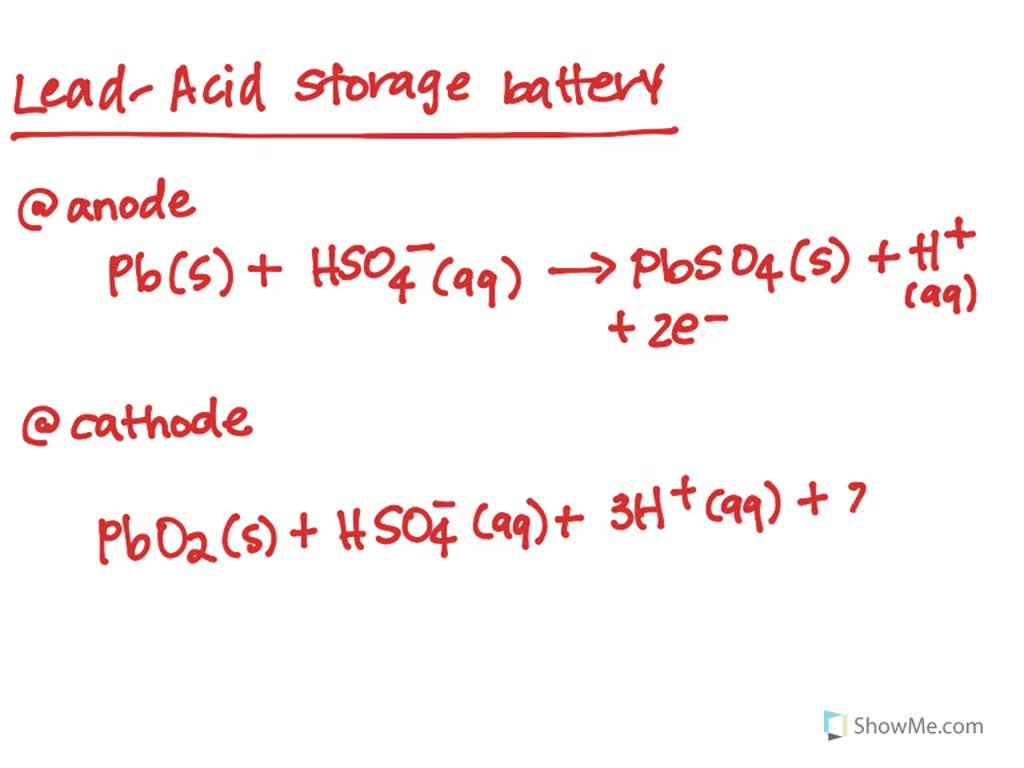 Lead-Acid storage battery
@ anode
Pb(s) + HSO4⁻(aq) → PbSO4(s) + H⁺(aq)
+ 2e⁻
@ cathode
PbO2(s) + HSO4⁻(aq) + 3H⁺(aq) +
ShowMe.com